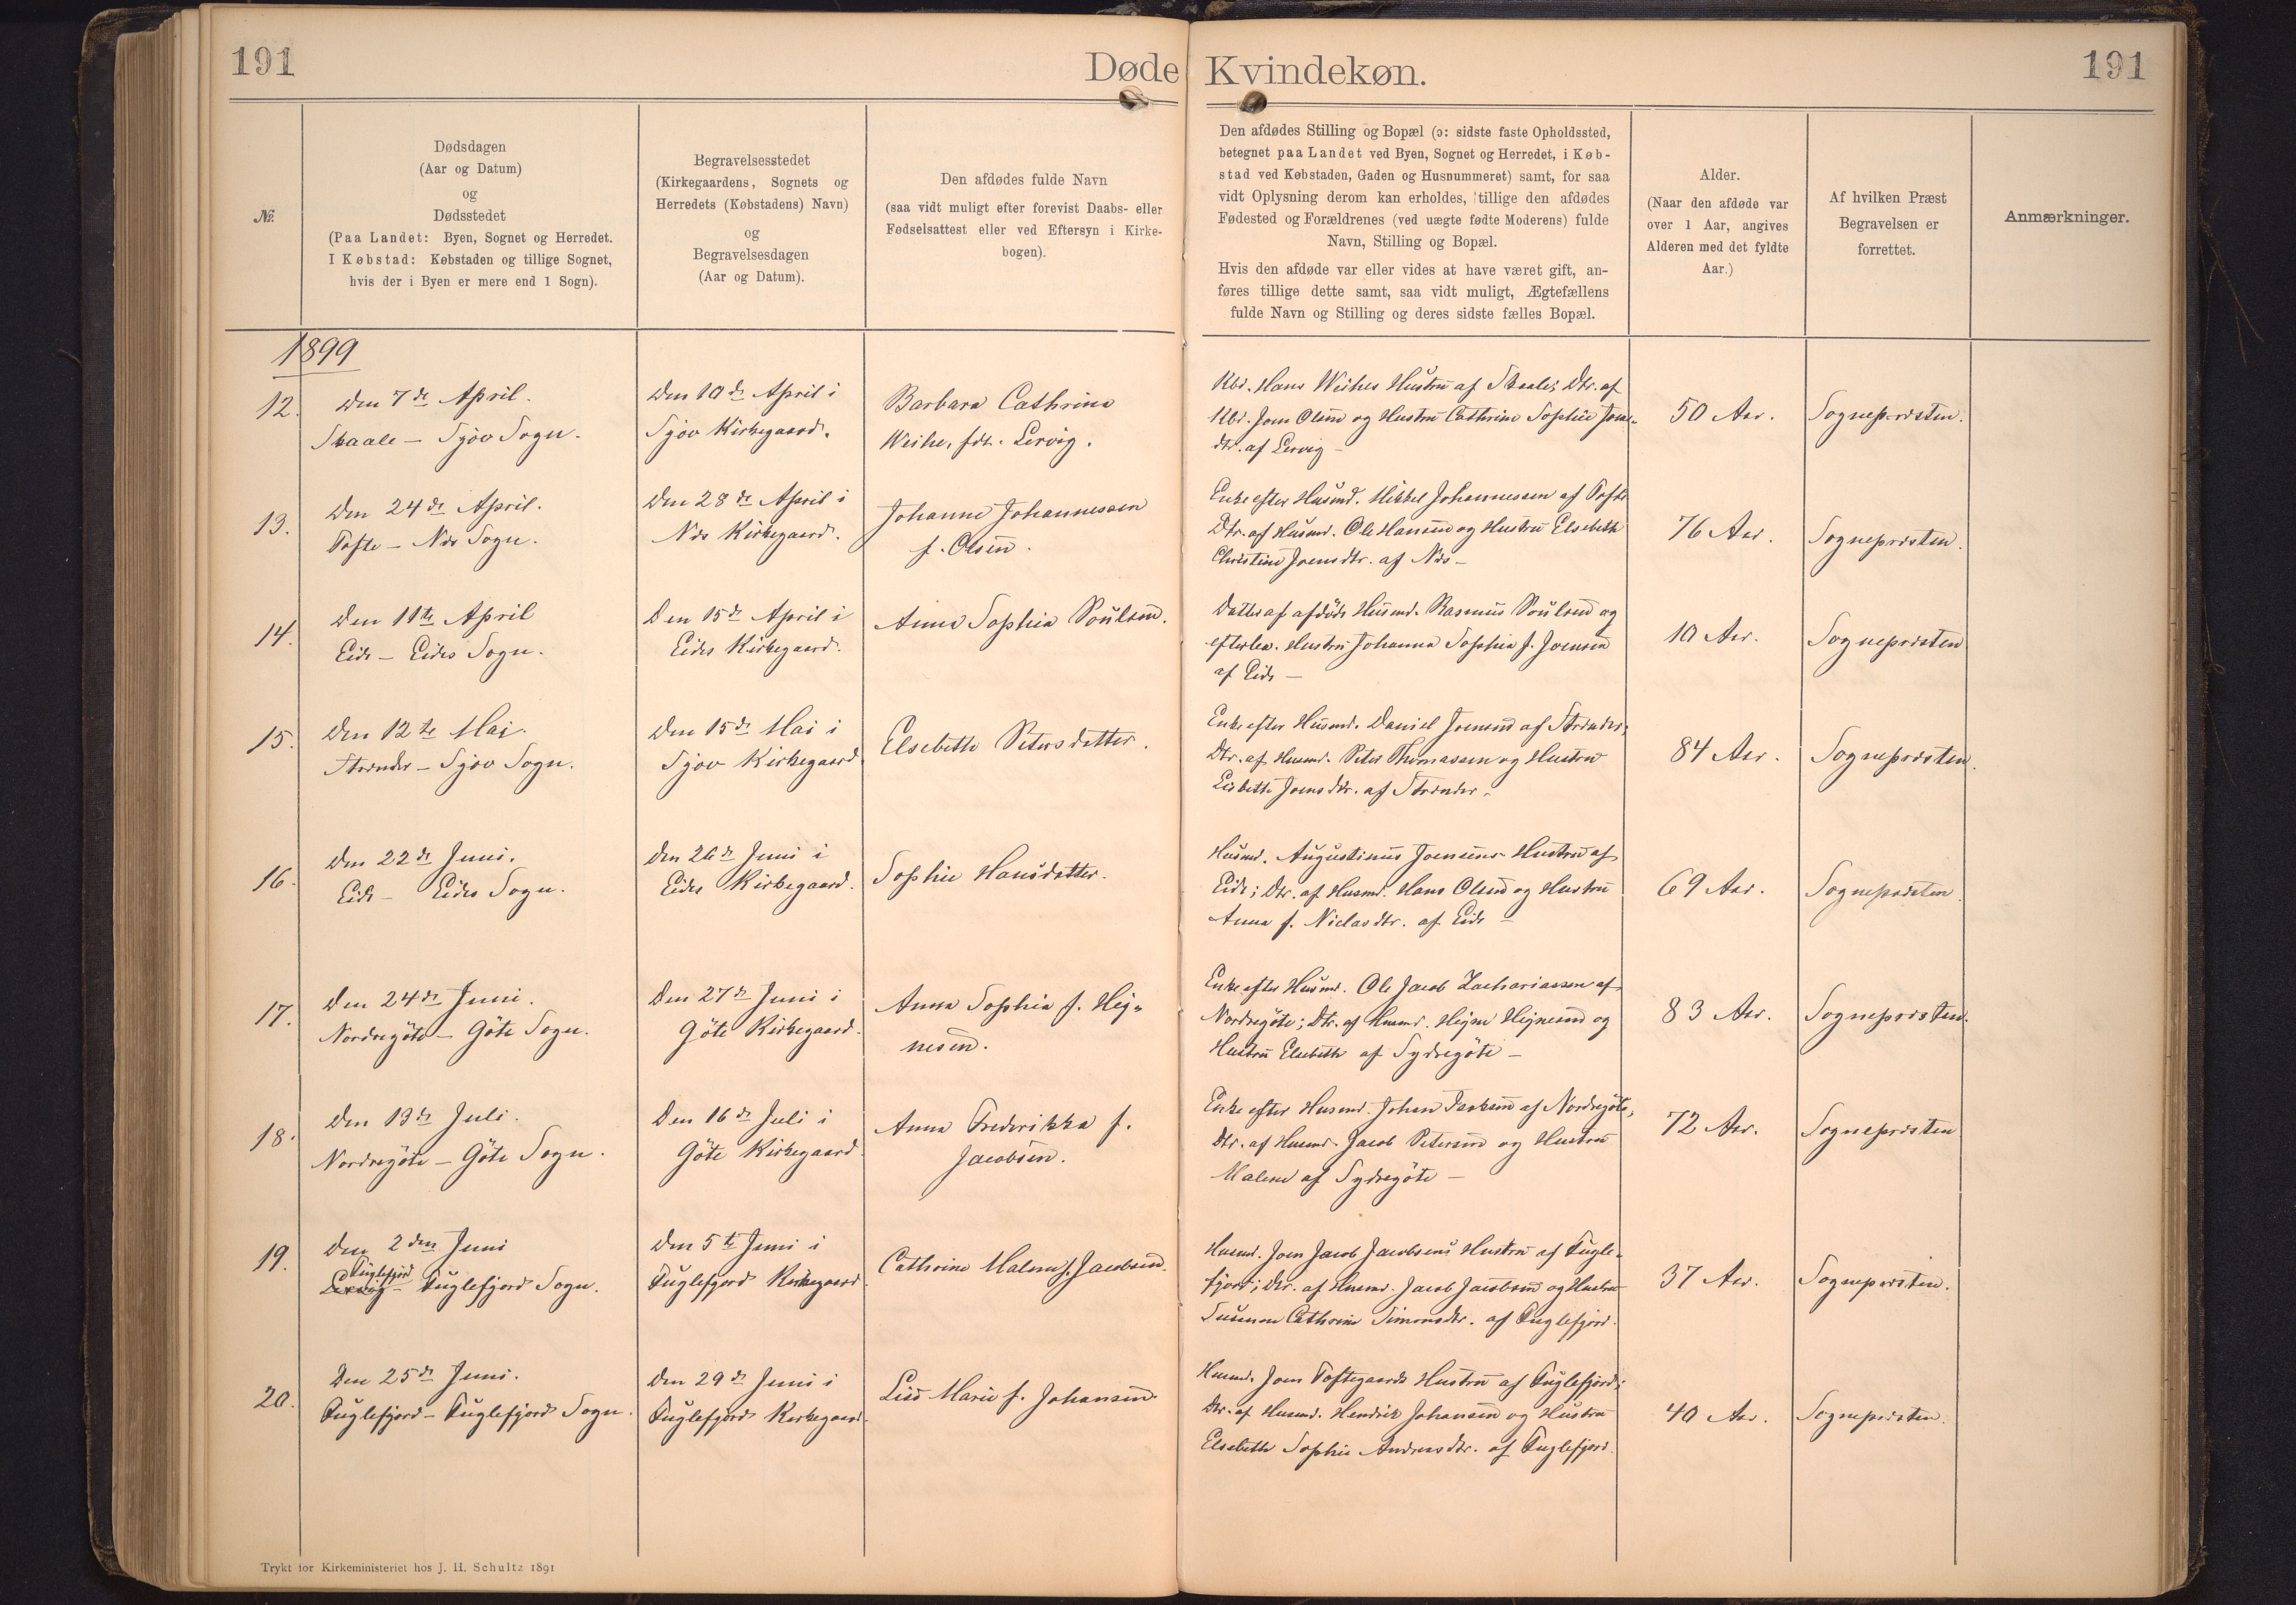 191
Døde Kvindekøn.
191
№.
Dødsdagen
(Aar og Datum)
og
Dødsstedet
(Paa Landet: Byen, Sognet og Herredet.
I Købstad: Købstaden og tillige Sognet,
hvis der i Byen er mere end 1 Sogn).
Begravelsesstedet
(Kirkegaardens, Sognets og
Herredets (Købstadens) Navn)
og
Begravelsesdagen
(Aar og Datum).
Den afdødes fulde Navn
(saa vidt muligt efter forevist Daabs- eller
Fødselsattest eller ved Eftersyn i Kirke-
bogen).
Den afdødes Stilling og Bopæl (ɔ: sidste faste Opholdssted,
betegnet paa Landet ved Byen, Sognet og Herredet, i Køb-
stad ved Købstaden, Gaden og Husnummeret) samt, for saa
vidt Oplysning derom kan erholdes, tillige den afdødes
Fødested og Forældrenes (ved uægte fødte Moderens) fulde
Navn, Stilling og Bopæl.
Hvis den afdøde var eller vides at have været gift, an-
føres tillige dette samt, saa vidt muligt, Ægtefællens
fulde Navn og Stilling og deres sidste fælles Bopæl.
Alder.
(Naar den afdøde var
over 1 Aar, angives
Alderen med det fyldte
Aar.)
Af hvilken Præst
Begravelsen er
forrettet.
Anmærkninger.
1899
12.
Den 7de April.
Skaale – Sjov Sogn.
Den 10de April i
Sjov Kirkegaard.
Barbara Cathrine
Weihe, fdt. Lervig.
Kbd. Hans Weihes Hustru af Skaale; Dtr. af
Kbd. Joen Olsen og Hustru Cathrine Sophie Joens-
dtr. af Lervig –
50 Aar.
Sognepræsten.
13.
Den 24de April.
Tofte – Næs Sogn.
Den 28de April i
Næs Kirkegaard.
Johanne Johannessen
f. Olsen.
Enke efter Husmd. Mikkel Johannessen af Tofte
Dtr. af Husmd. Ole Hansen og Hustru Elsebeth
Christine Joensdtr. af Næs –
76 Aar.
Sognepræsten.
14.
Den 11te April
Eide – Eides Sogn.
Den 15de April i
Eides Kirkegaard.
Anna Sophia Poulsen.
Datter af afdøde Husmd. Rasmus Poulsen og
efterlev. Hustru Johanna Sophia f. Joensen
af Eide –
10 Aar.
Sognepræsten
15.
Den 12te Mai.
Strænder – Sjov Sogn.
Den 15de Mai i
Sjov Kirkegaard
Elsebeth Petersdatter.
Enke efter Husmd. Daniel Joensen af Strænder;
Dtr. af Husmd. Peter Thomassen og Hustru
Lisbeth Joensdtr. af Strænder.
84 Aar.
Sognepræsten.
16.
Den 22de Juni.
Eide – Eides Sogn.
Den 26de Juni i
Eides Kirkegaard.
Sophie Hansdatter.
Husmd. Augustinus Joensens Hustru af
Eide; Dtr. af Husmd. Hans Olsen og Hustru
Anna f. Niclasdtr. af Eide –
69 Aar.
Sognepræsten.
17.
Den 24de Juni.
Nordregöte – Göte Sogn.
Den 27de Juni i
Göte Kirkegaard.
Anna Sophia f. Hej-
nesen.
Enke efter Husmd. Ole Jacob Zachariassen af
Nordregöte; Dtr. af Husmd. Hejne Hejnesen og
Hustru Elsebeth af Sydregöte –
83 Aar.
Sognepræsten.
18.
Den 13de Juli.
Nordregöte – Göte Sogn.
Den 16de Juli i
Göte Kirkegaard.
Anna Frederikka f.
Jacobsen.
Enke efter Husmd. Johan Isaksen af Nordregöte;
Dtr. af Husmd. Jacob Petersen og Hustru
Malene af Sydregöte –
72 Aar.
Sognepræsten
19.
Den 2den Juni
Fuglefjord
Lervig – Fuglefjord Sogn.
Den 5te Juni i
Fuglefjord Kirkegaard.
Cathrine Malene f. Jacobsen.
Husmd. Joen Jacob Jacobsens Hustru af Fugle-
fjord; Dtr. af Husmd. Jacob Jacobsen og Hustru
Susanne Cathrine Simonsdtr. af Fuglefjord.
37 Aar.
Sognepræsten.
20.
Den 25de Juni.
Fuglefjord – Fuglefjord Sogn.
Den 29de Juni i
Fuglefjord Kirkegaard.
Marie f. Johansen
Husmd. Joen Toftegaards Hustru af Fuglefjord;
Dtr. af Husmd. Hendrik Johansen og Hustru
Elsebeth Sophie Andreasdtr. af Fuglefjord.
40 Aar.
Sognepræsten.
Trykt for Kirkeministeriet hos J. H. Schultz 1891